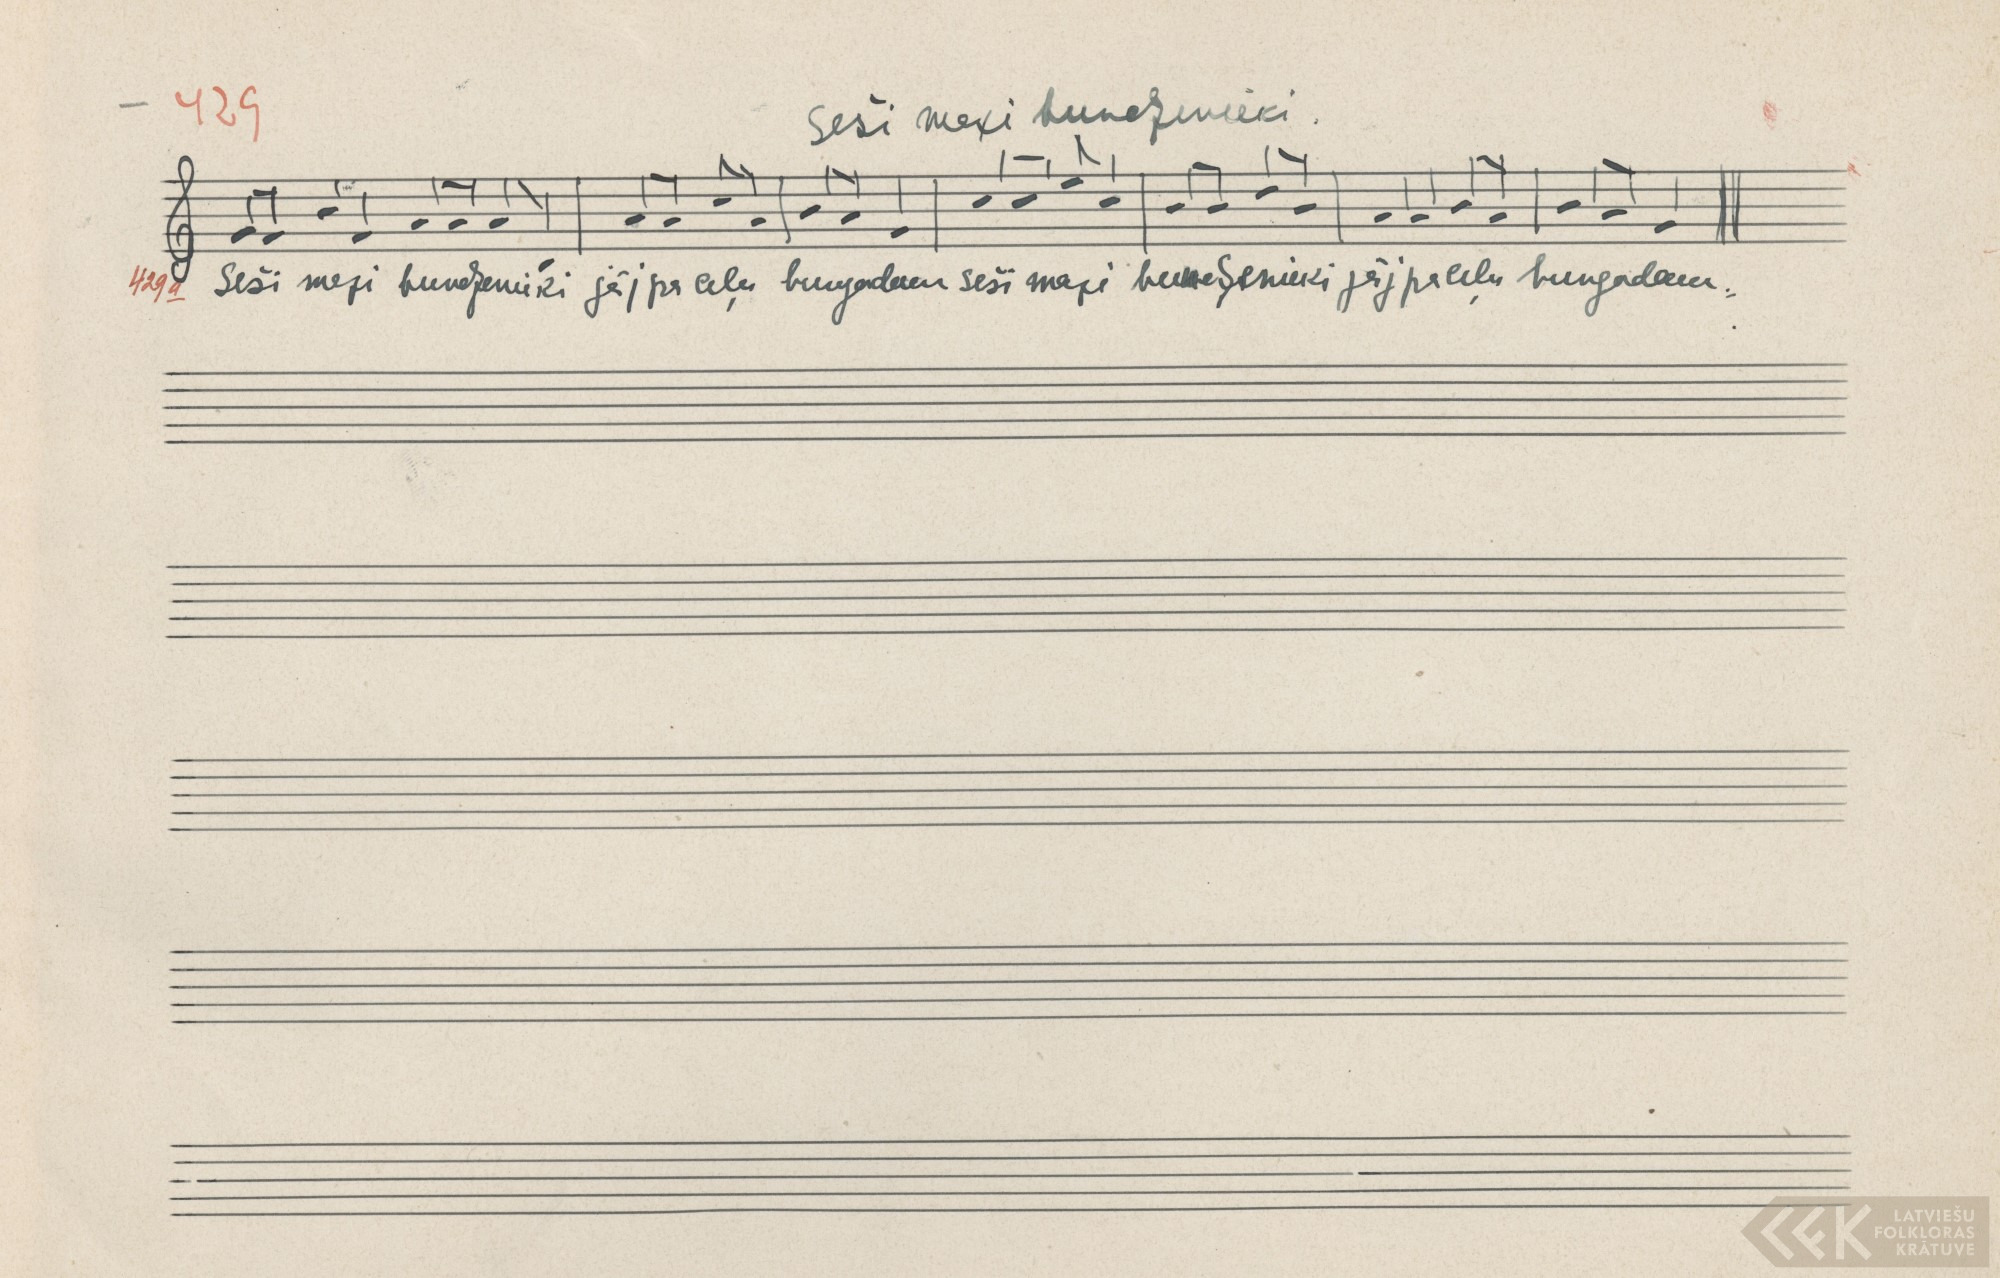 – 429
Seši mazi bundzenieki.
429a Seši mazi bundzenieki jāj pa ceļu bungodam seši mazi bundzenieki jāj pa ceļu bungodam.
LATVIEŠU
FOLKLORAS
KRĀTUVE